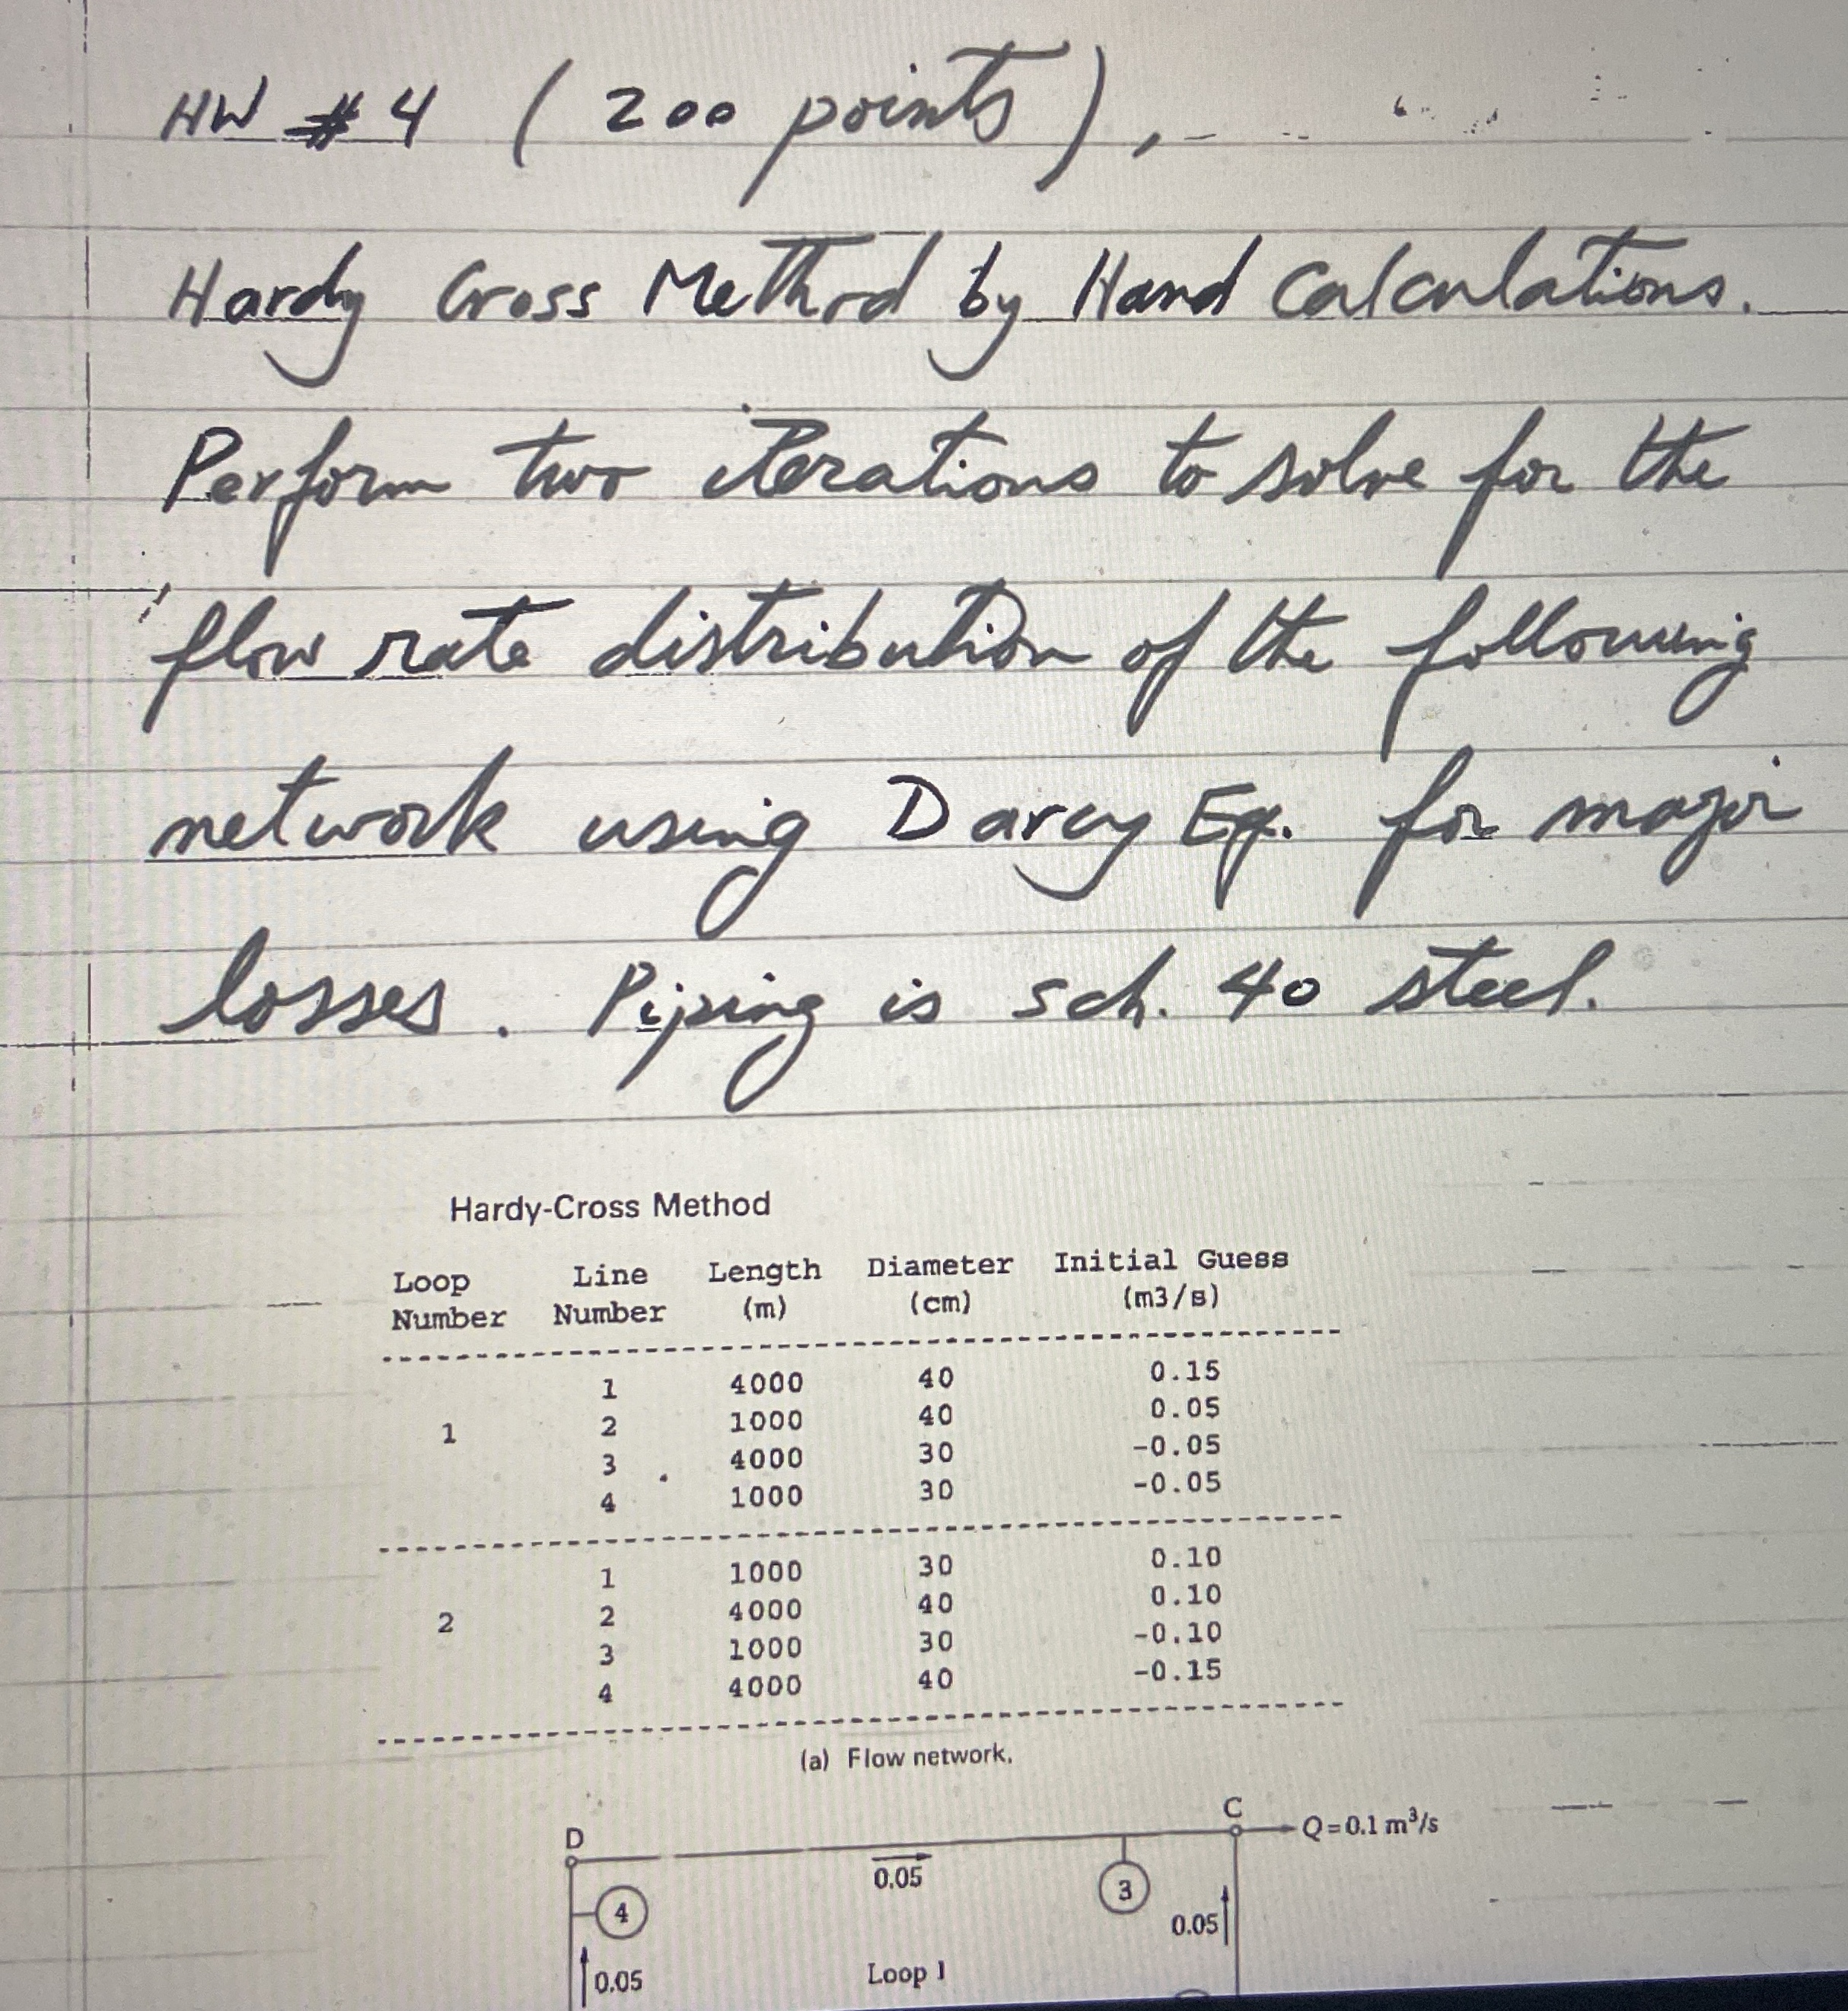 HW #4 (200 points),
Hardy Cross Method by Hand Calculations.
Perform two iterations to solve for the
flow rate distribution of the following
network using Darcy Eq. for major
losses. Piping is sch. 40 steel.
Hardy-Cross Method
Loop Line Length Diameter Initial Guess
Number Number (m) (cm) (m3/s)
1 4000 40 0.15
2 1000 40 0.05
1
3 4000 30 -0.05
4 1000 30 -0.05
1 1000 30 0.10
2 4000 40 0.10
2
3 1000 30 -0.10
4 4000 40 -0.15
(a) Flow network.
D C Q=0.1 m³/s
0.05 3
4 0.05
0.05 Loop 1